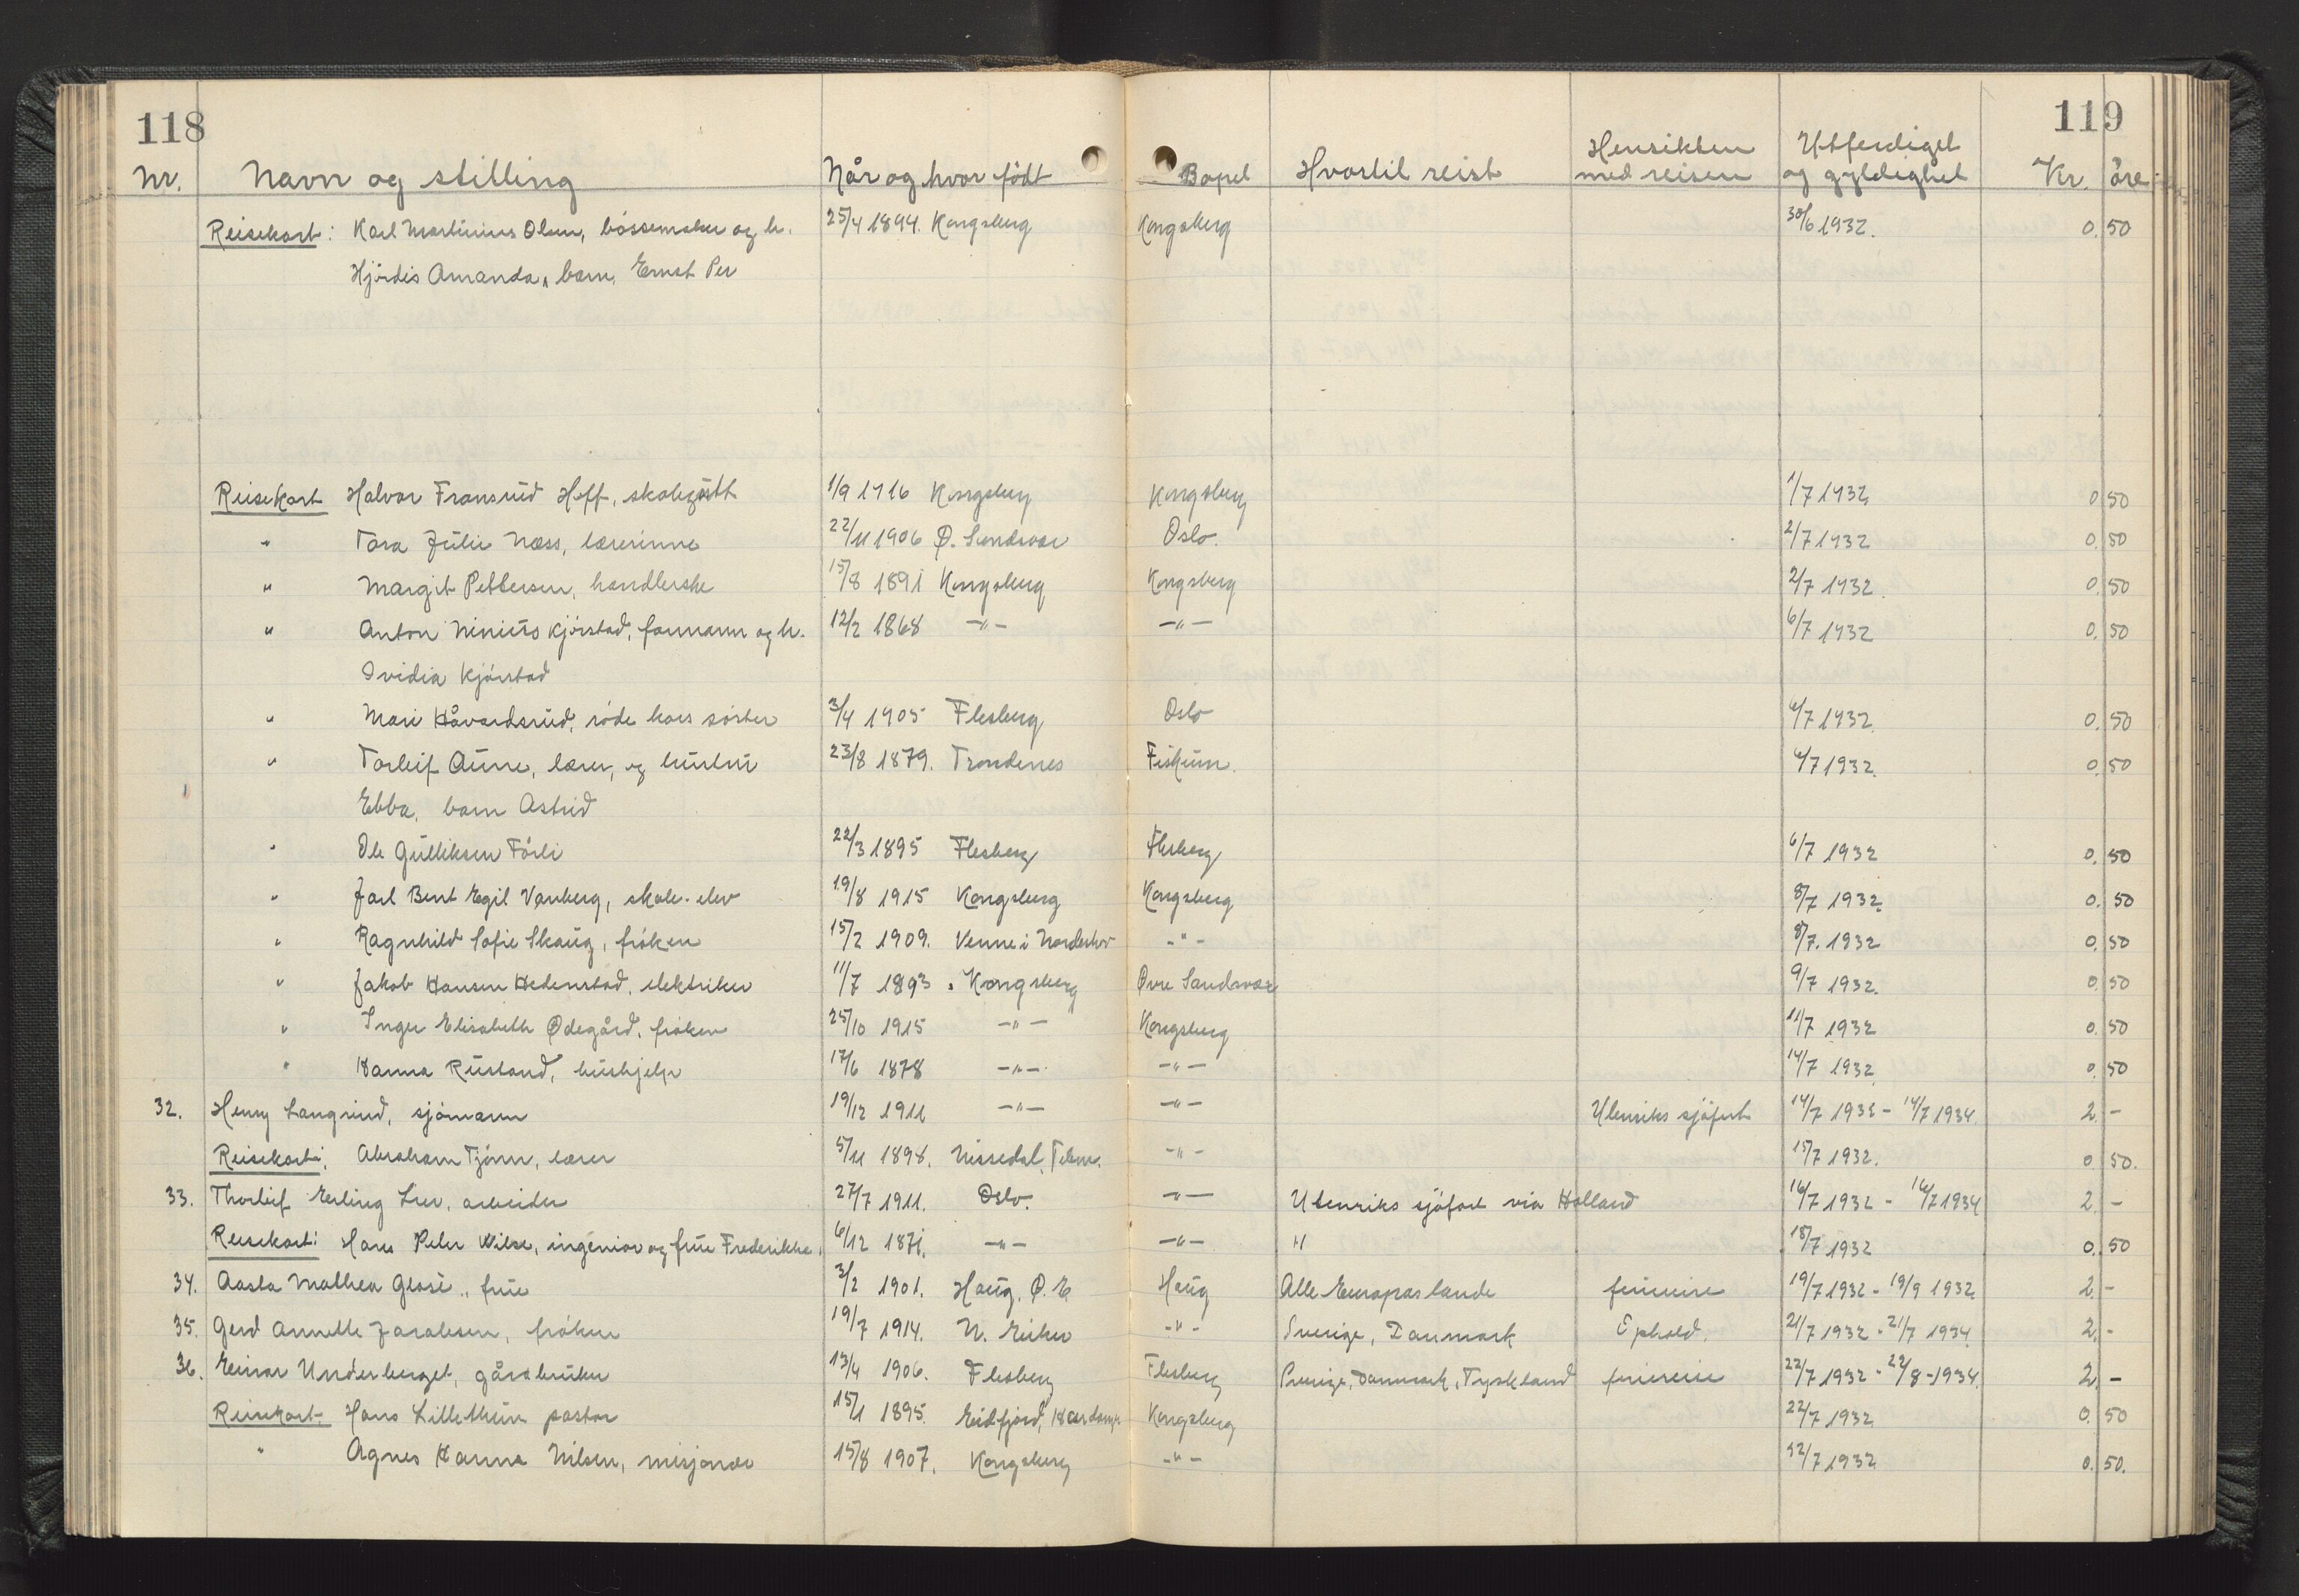 118
119
Nr. Navn og stilling Når og hvor födt Bopel Hvortil reist Hensikten med reisen Utferdiget og gyldighet Kr. öre
Reisekort: Karl Martinius Olsen, bössemaker og h. 25/4 1894. Kongsberg Kongsberg 30/6 1932. 0. 50
Hjördis Amanda, barn, Ernst Per
Reisekort Halvor Fransrud Hoff, skolegutt 1/9 1916 Kongsberg Kongsberg 1/7 1932 0 50
" Tora Julie Næss, lærerinne 22/11 1906 Ø. Sandsvær Oslo. 2/7 1932 0. 50
" Margit Pettersen, handlerske 15/8 1891 Kongsberg Kongsberg 2/7 1932. 0. 50
" Anton Ninius Kjörstad, formann og h. 12/2 1868 -"- -"- 6/7 1932 0. 50
Ovidia Kjörstad
" Mari Håvardsrud, röde kors söster 3/4 1905 Flesberg Oslo 6/7 1932 0. 50
" Torleif Aune, lærer, og hustru 23/8 1879. Trondenes Fiskum. 6/7 1932. 0. 50
Ebba, barn Astrid
" Ole Gulliksen Förli 22/3 1895 Flesberg Flesberg 6/7 1932 0. 50
" Jarl Bent Egil Vanberg, skole-elev 19/8 1915 Kongsberg Kongsberg 8/7 1932. 0. 50
" Ragnhild Sofie Skaug, fröken 15/2 1909. Venne i Norderhov -"- 8/7. 1932 0. 50
" Jakob Hansen Hedenstad, elektriker 11/7 1893. Kongsberg Øvre Sandsvær 9/7 1932. 0. 50
" Inger Elisabeth Ødegård, fröken 25/10 1915 -"- Kongsberg 11/7 1932 0. 50
" Hanna Rustand, hushjelp 17/6 1878 -"- -"- 14/7 1932 0. 50
32. Henry Langrud, sjömann 19/12 1911 -"- -"- Utenriks sjöfart 14/7 1932 - 14/7 1934. 2. -
Reisekort: Abraham Tjönn, lærer 5/11 1898. Nissedal, Telem. -"- 15/7 1932. 0 50.
33. Thorleif Erling Lier, arbeider 27/7 1911. Oslo. -"- Utenriks sjöfart via Holland 16/7 1932 - 16/7 1934 2. -
Reisekort: Hans Peter Wilse, ingeniør og frue Frederikke. 6/12 1871. -"- -"- " 18/7 1932 0. 50
34. Aasta Mathea , frue 3/2 1901. Haug. Ø. E Haug Alle Europas lande feriereise 19/7 1932 - 19/9 1932 2. -
35. Gerd Annette Jacobsen, fröken 19/7 1914. N. Eiker -"- Sverige, Danmark Ophold. 21/7 1932 - 21/7 1934 2. -
36. Einar Underberget, gårdbruker 13/4 1906. Flesberg Flesberg Sverige, Danmark, Tyskland feriereise 22/7 1932 - 22/8-1934. 2. -
Reisekort Hans Lillethun pastor 15/1 1895. Eidfjord, Hardanger Kongsberg 22/7 1932 0. 50
" Agnes Hanna Nilsen, 15/8 1907. Kongsberg -"- 22/7 1932 0. 50.